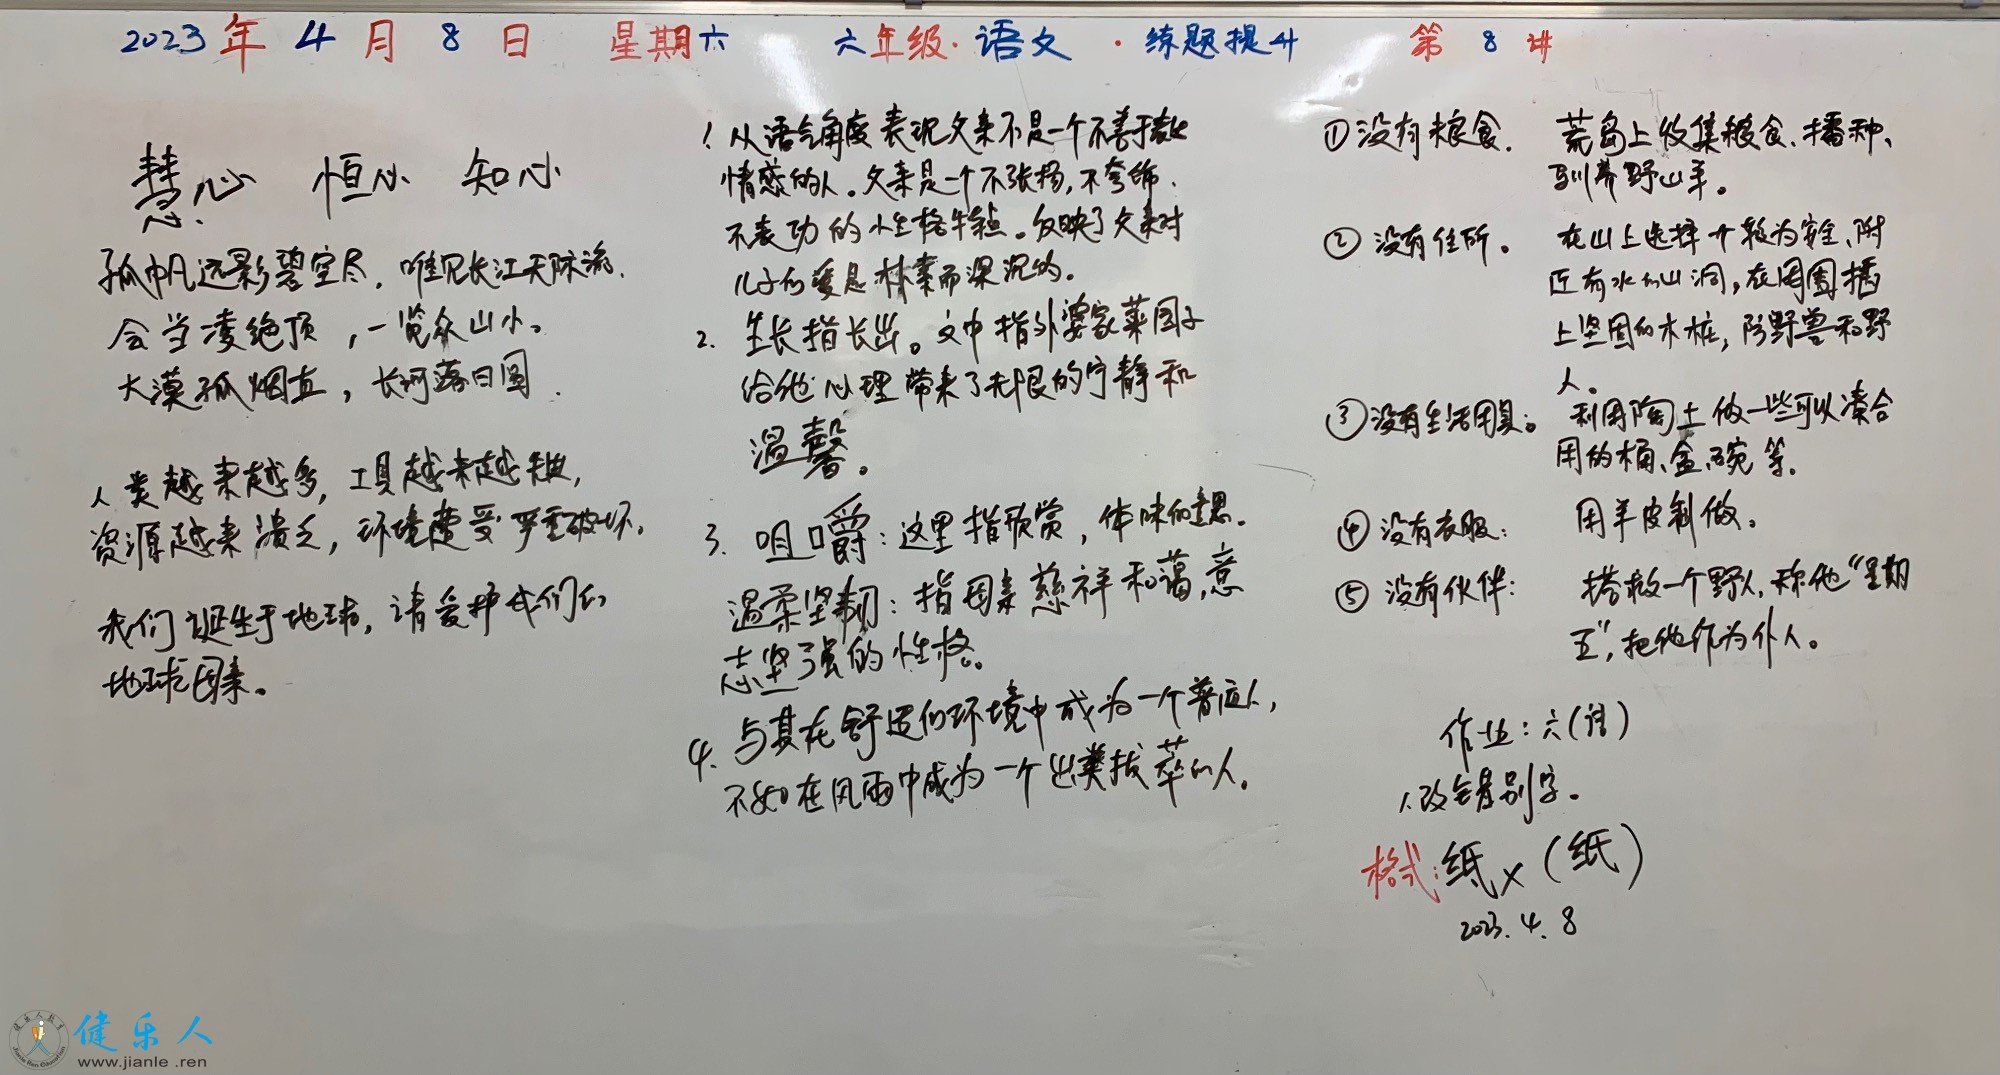 2023年 4月 8日 星期六 六年级·语文·练题提升 第 8 讲
慧心 恒心 知心
孤帆远影碧空尽，唯见长江天际流.
会当凌绝顶，一览众山小。
大漠孤烟直，长河落日圆.
人类越来越多，工具越来越先进，
资源越来溃乏，环境遭受严重破坏.
我们诞生于地球，请爱护我们的
地球母亲。
1. 从语言角度表现父亲不是一个不善于表达
情感的人。父亲是一个不张扬，不夸饰.
不表功的性格特点。反映了父亲对
儿子的爱是朴素而深沉的。
2. 生长指长出。文中指外婆家菜园子
给他心理带来了无限的宁静和
温馨。
3. 咀嚼：这里指欣赏，体味的意思.
温柔坚韧：指母亲慈祥和蔼，意
志坚强的性格。
4. 与其在舒适的环境中成为一个普通人，
不如在风雨中成为一个出类拔萃的人。
①没有粮食. 荒岛上收集粮食、播种、
驯养野山羊。
②没有住所。 在山上选择个较为安全、附
近有水的山洞，在周围插
上坚固的木桩，防野兽和野
人。
③没有生活用具。 利用陶土做一些可以凑合
用的桶、盆、碗等.
④没有衣服： 用羊皮制做。
⑤没有伙伴： 搭救一个野人，称他“星期
五”，把他作为仆人。
作业：六（语）
1. 改错别字。
格式：纸×（纸）
2023. 4. 8
健乐人
www.jianle.ren